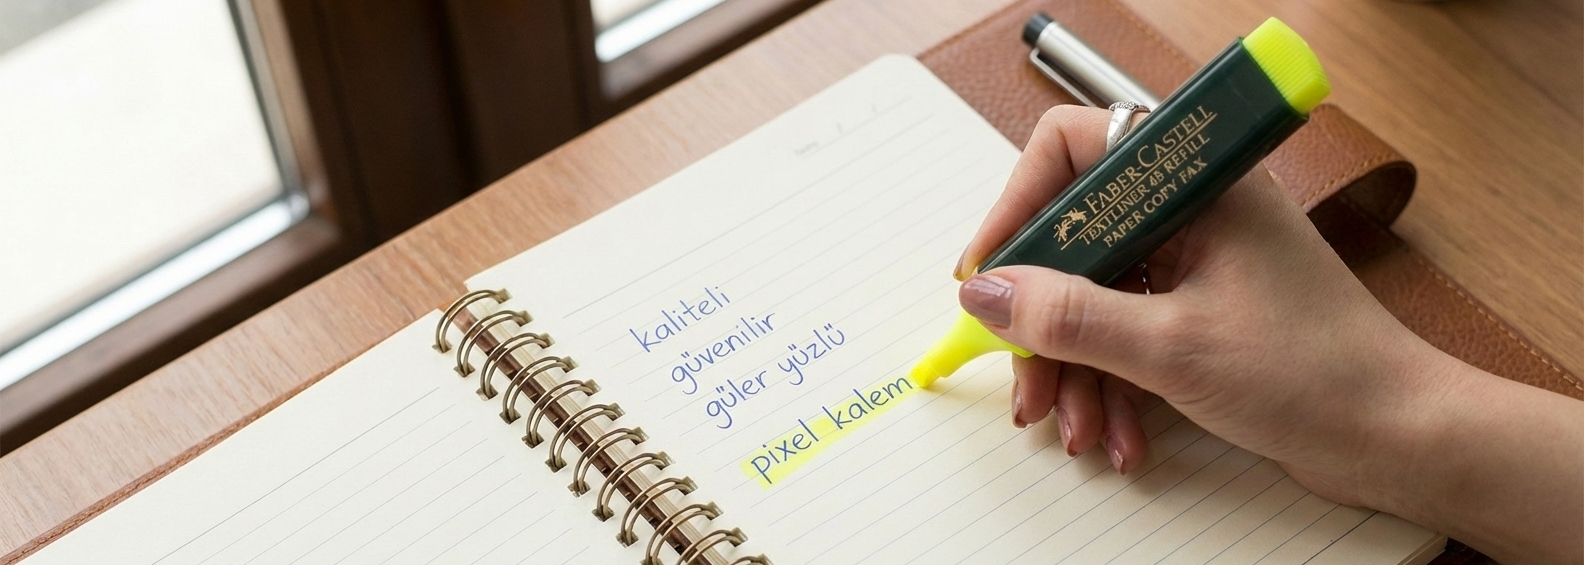 kaliteli
güvenilir
güler yüzlü
pixel kalem
FABER-CASTELL
TEXTLINER 48 REFILL
PAPER COPY FAX